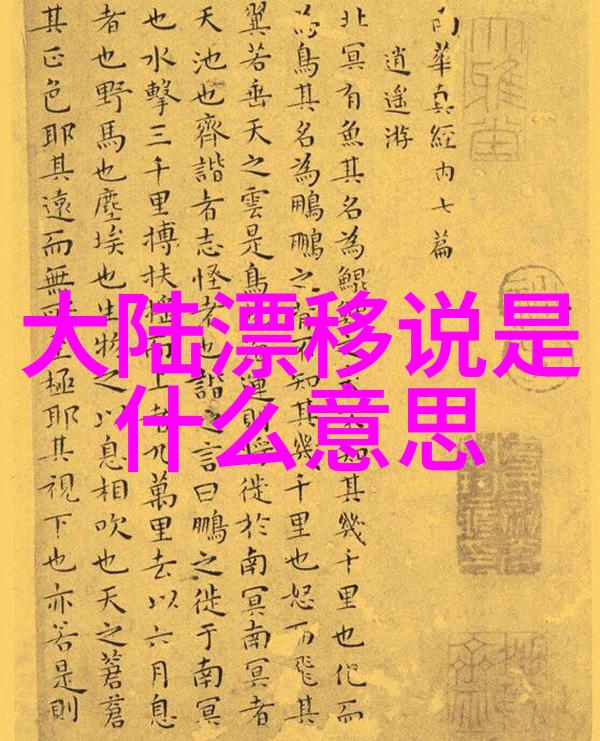 大陆漂移说是
什么意思
南華真經内七篇
逍遥游
北冥有魚其名為鯤 知其幾千里也化而
為鳥其名為鵬鵬之背不知其幾千里也怒而飛其
翼若垂天之雲是鳥 運則將徙於南冥南冥者
天池也齊諧者志怪者也諧之言曰鵬之徙于南冥
也水擊三千里搏扶摇而上者九萬里去以六月息
者也野馬也塵埃也生物之以息相吹也天之蒼蒼
其正色耶其遠而無 至極耶其視下也亦若是則